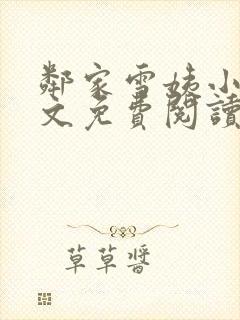 鄰家雪姨小
文免費閱讀
草草醬